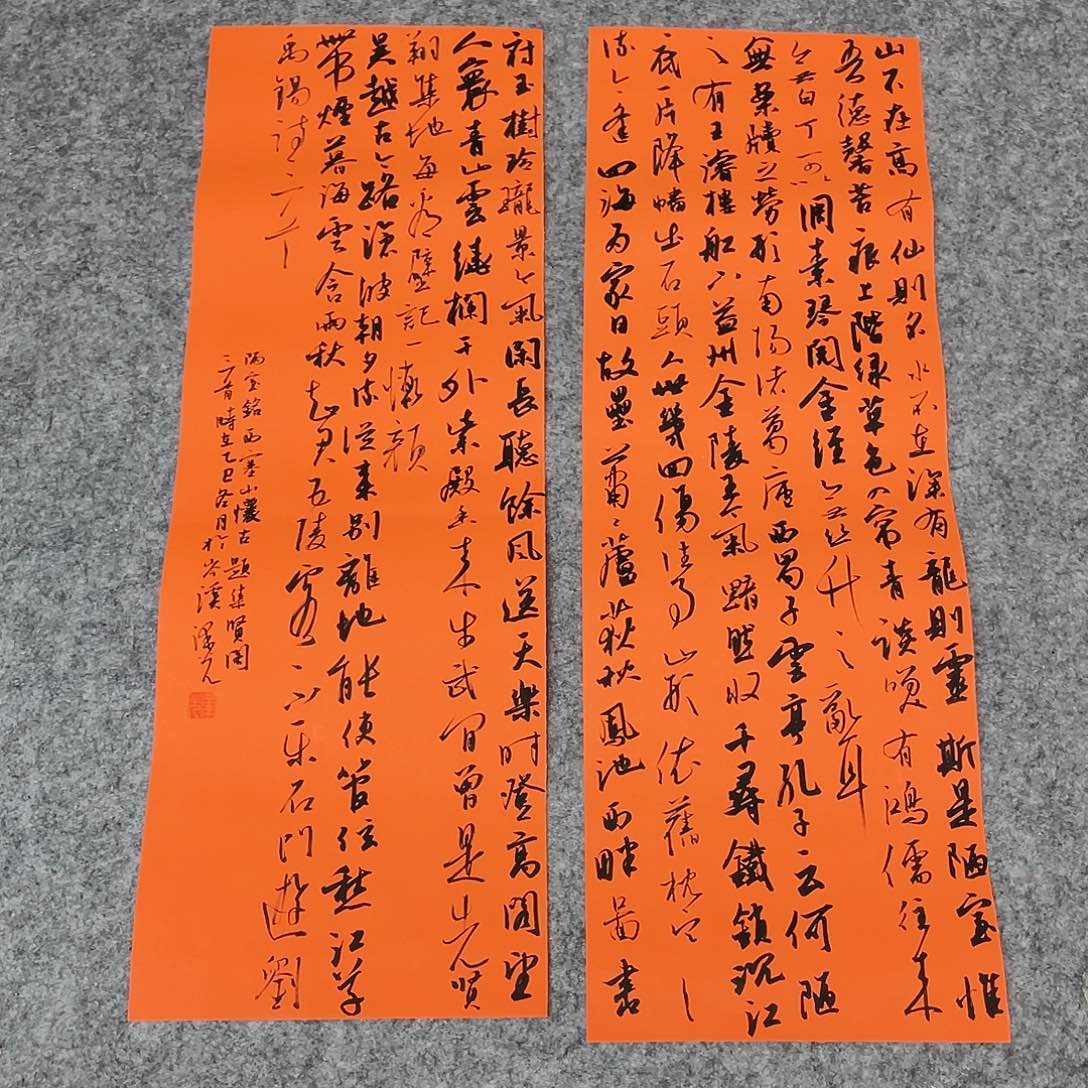 山不在高有仙則名水不在深有龍則靈斯是陋室惟
吾德馨苔痕上階绿草色入帘青談笑有鴻儒往来
無白丁可以調素琴閱金經無丝竹之亂耳
無案牘之勞形南陽诸葛廬西蜀子雲亭孔子云何陋
之有王濬樓船下益州金陵王氣黯然收千尋鐵鎖沉江
底一片降幡出石頭人世幾回傷往事山形依舊枕寒
流今逢四海为家日故壘萧萧蘆荻秋鳳池西畔圖書
府玉樹玲瓏景氣閑長聽餘風送天樂時登高閣望
人寰青山雲繞欄干外紫殿香来步武间曾是先賢
翔集地每看壁記一慚顏
吴越古今路滄波朝夕流從来别離地能使管弦愁江草
帶煙暮海雲含雨秋知君五陵客不樂石門遊劉
禹錫詩
陋室銘西塞山懷古題集賢閣
首時在乙巳冬月於岑溪